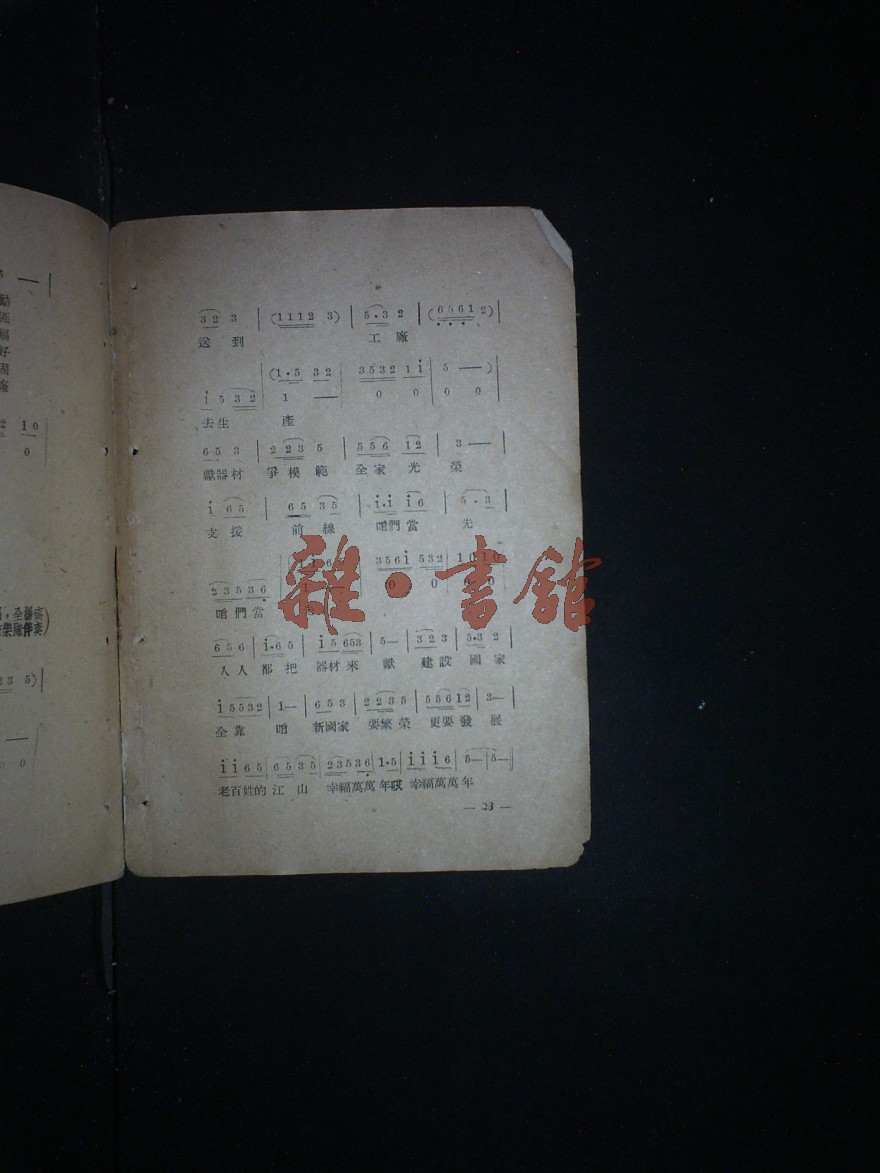 動
福
好
廠
1 0
0
全
伴奏)
3 5)|
0 0
3 2 3 | (1 1 1 2 3) | 5 · 3 2 | (6 5 6 1 2) |
送到 工廠
(1 · 5 3 2 | 3 5 3 2 1 i | 5 — )
i 5 3 2 | 1 — | 0 0 | 0 0
去生產
6 5 3 | 2 2 3 5 | 5 5 6 1 2 | 3 — |
獻器材 爭模範 全家光榮
i 6 5 | 6 5 3 5 | i · i i 6 | 5 · 3 |
支援 前線 咱們當先
3 5 6 i 5 3 2 | 1 0 1 0
2 3 5 3 6 | 0 0
咱們當
雜·書館
6 5 6 | i · 6 5 | i 5 6 5 3 | 5 — | 3 2 3 | 5 · 3 2 |
人人 都把 器材來獻 建設國家
i 5 5 3 2 | 1 — | 6 5 3 | 2 2 3 5 | 5 5 6 1 2 | 3 — |
全靠咱 新國家 要繁榮 更要發展
i i 6 5 | 6 5 3 5 | 2 3 5 3 6 | 1 · 5 | i i i 6 | 5 — | 5 — ‖
老百姓的江山 幸福萬萬年哎 幸福萬萬年
— 23 —